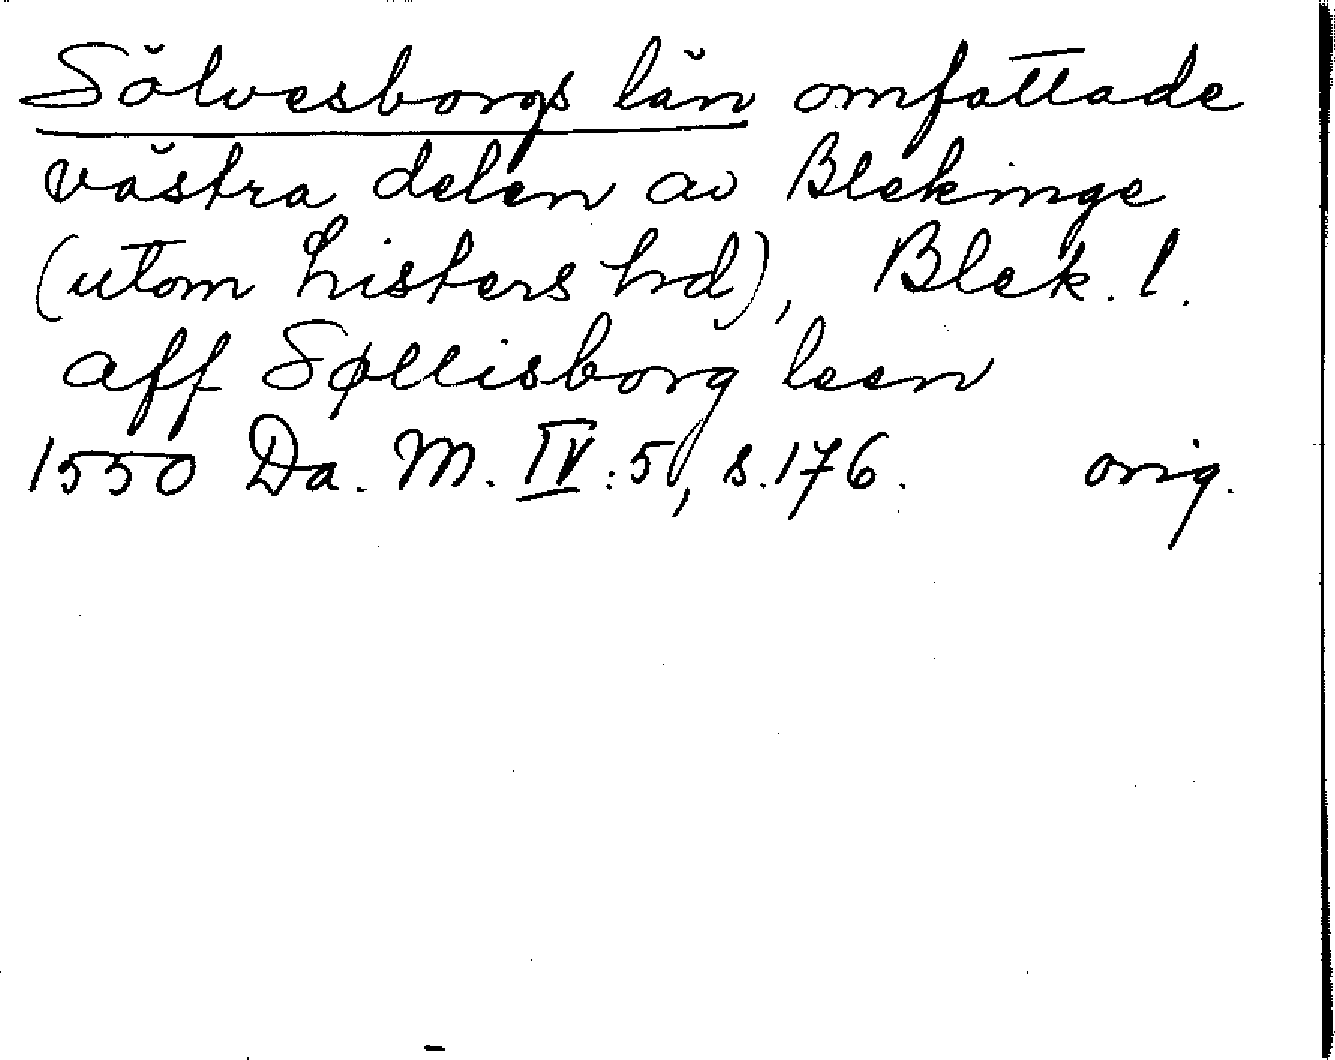 Sölvesborgs län omfattade
västra delen av Blekinge
(utom Listers hd), Blek. l.
aff Søllisborg leen
1550 Da. M. IV:5, s.176. orig.